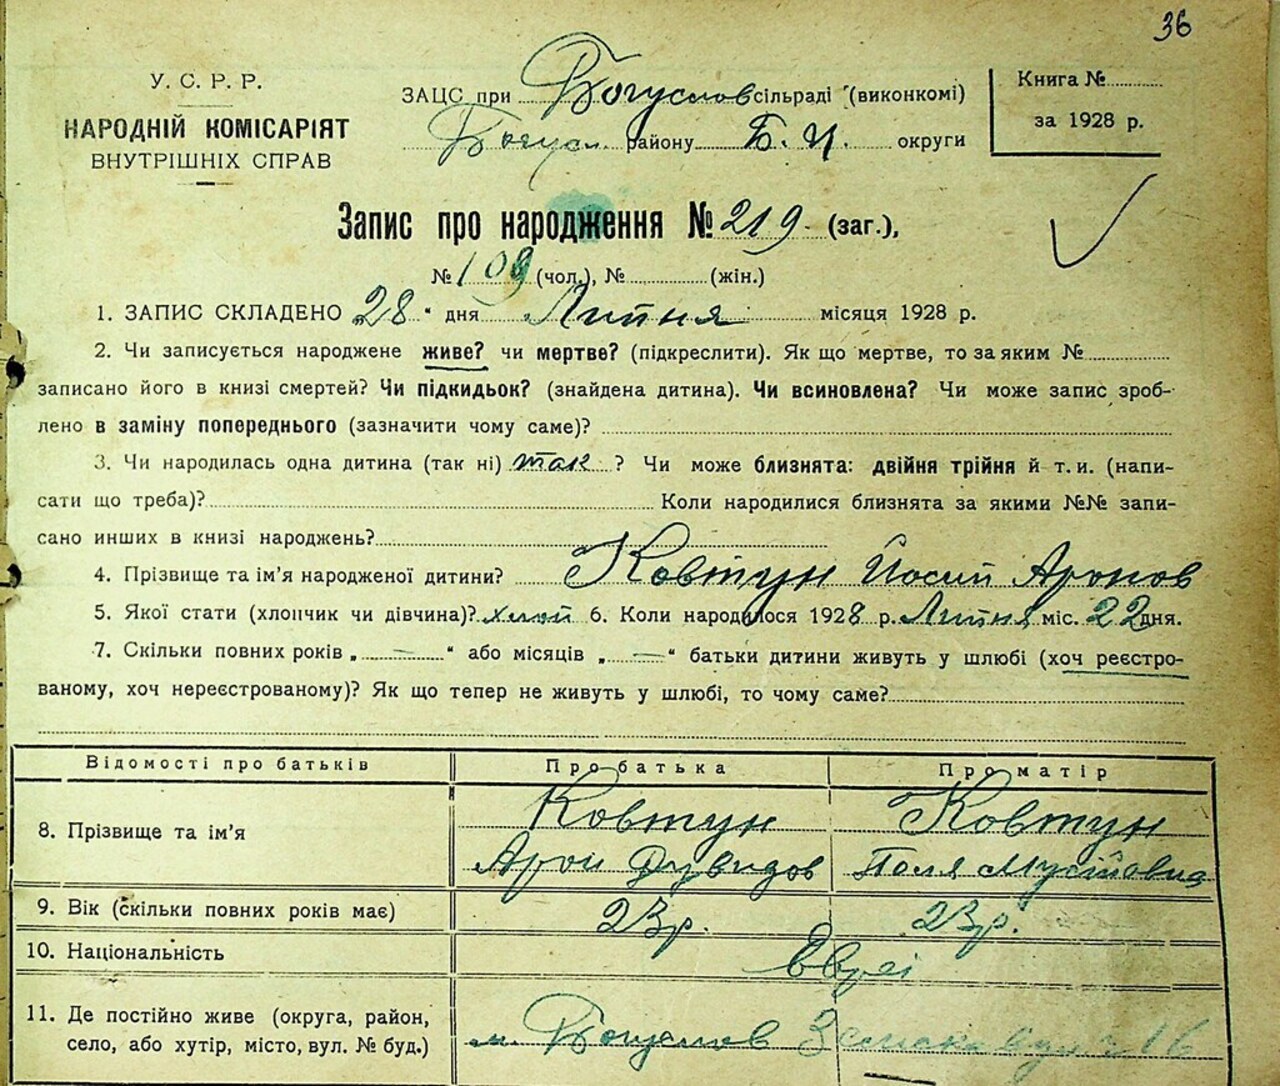 36
У. С. Р. Р.
НАРОДНІЙ КОМІСАРІЯТ
ВНУТРІШНІХ СПРАВ
ЗАЦС при Богуслов сільраді (виконкомі)
Богусл. району Б. Ц. округи
Книга №
за 1928 р.
Запис про народження № 219 (заг.),
№ 109 (чол.), № (жін.)
1. ЗАПИС СКЛАДЕНО „28“ дня Липня місяця 1928 р.
2. Чи записується народжене живе? чи мертве? (підкреслити). Як що мертве, то за яким №
записано його в книзі смертей? Чи підкидьок? (знайдена дитина). Чи всиновлена? Чи може запис зроб-
лено в заміну попереднього (зазначити чому саме)?
3. Чи народилась одна дитина (так ні) так ? Чи може близнята: двійня трійня й т. и. (напи-
сати що треба)? Коли народилися близнята за якими №№ запи-
сано инших в книзі народжень?
4. Прізвище та ім’я народженої дитини? Ковтун Йосип Аронов
5. Якої стати (хлопчик чи дівчина)? 6. Коли народилося 1928 р. Липня міс. 22 дня.
7. Скільки повних років „ — “ або місяців „ — “ батьки дитини живуть у шлюбі (хоч реєстро-
ваному, хоч нереєстрованому)? Як що тепер не живуть у шлюбі, то чому саме?
Відомості про батьків Про батька Про матір
8. Прізвище та ім’я Ковтун Ковтун
Арон Поля
9. Вік (скільки повних років має) 23 р. 23 р.
10. Національність Евреі
11. Де постійно живе (округа, район,
село, або хутір, місто, вул. № буд.) м. Богуслов 16